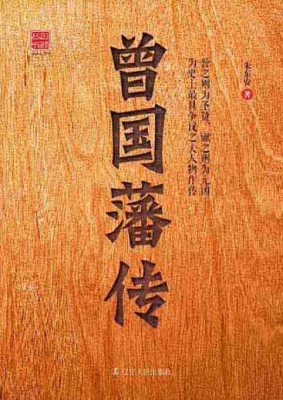 曾国藩传
誉之则为圣贤，谳之则为元凶
为史上最具争议之大人物作传
朱东安 著
辽宁人民出版社